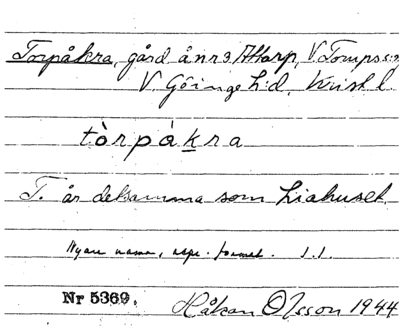 Torpåkra, gård å nr 3 Attarp, V. Torups s:n
V. Göinge h:d, Krist. l.
tòrpákra
T. är detsamma som Liahuset.
Nyare namn,
Nr 5369. Håkan Olsson 1944